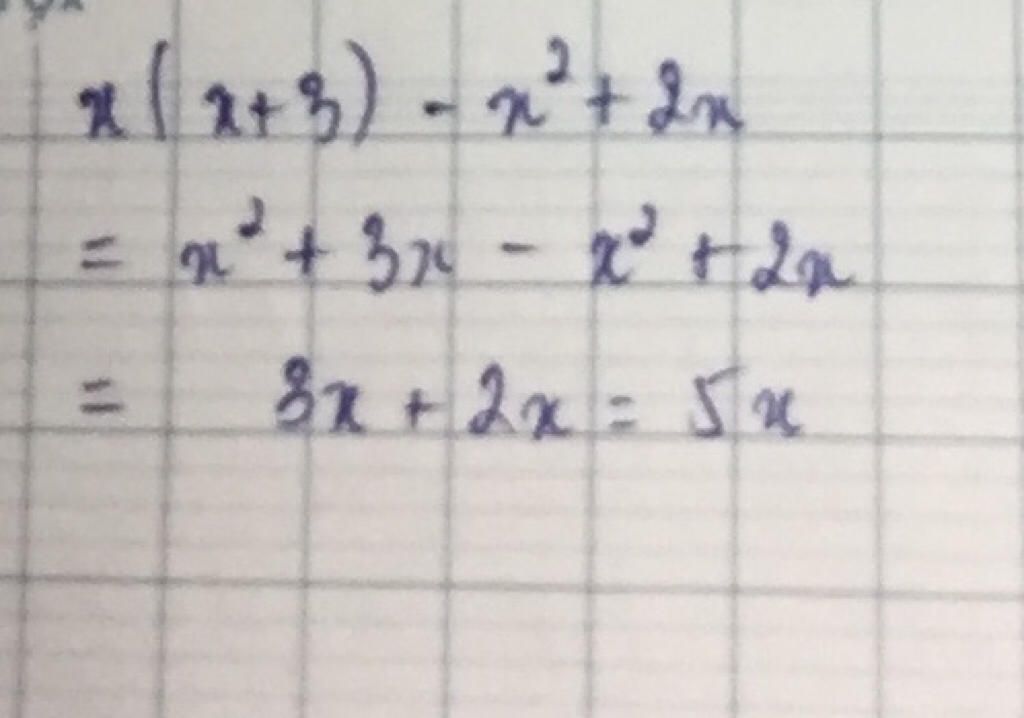 x(x+3) - x² + 2x
= x² + 3x - x² + 2x
= 3x + 2x = 5x